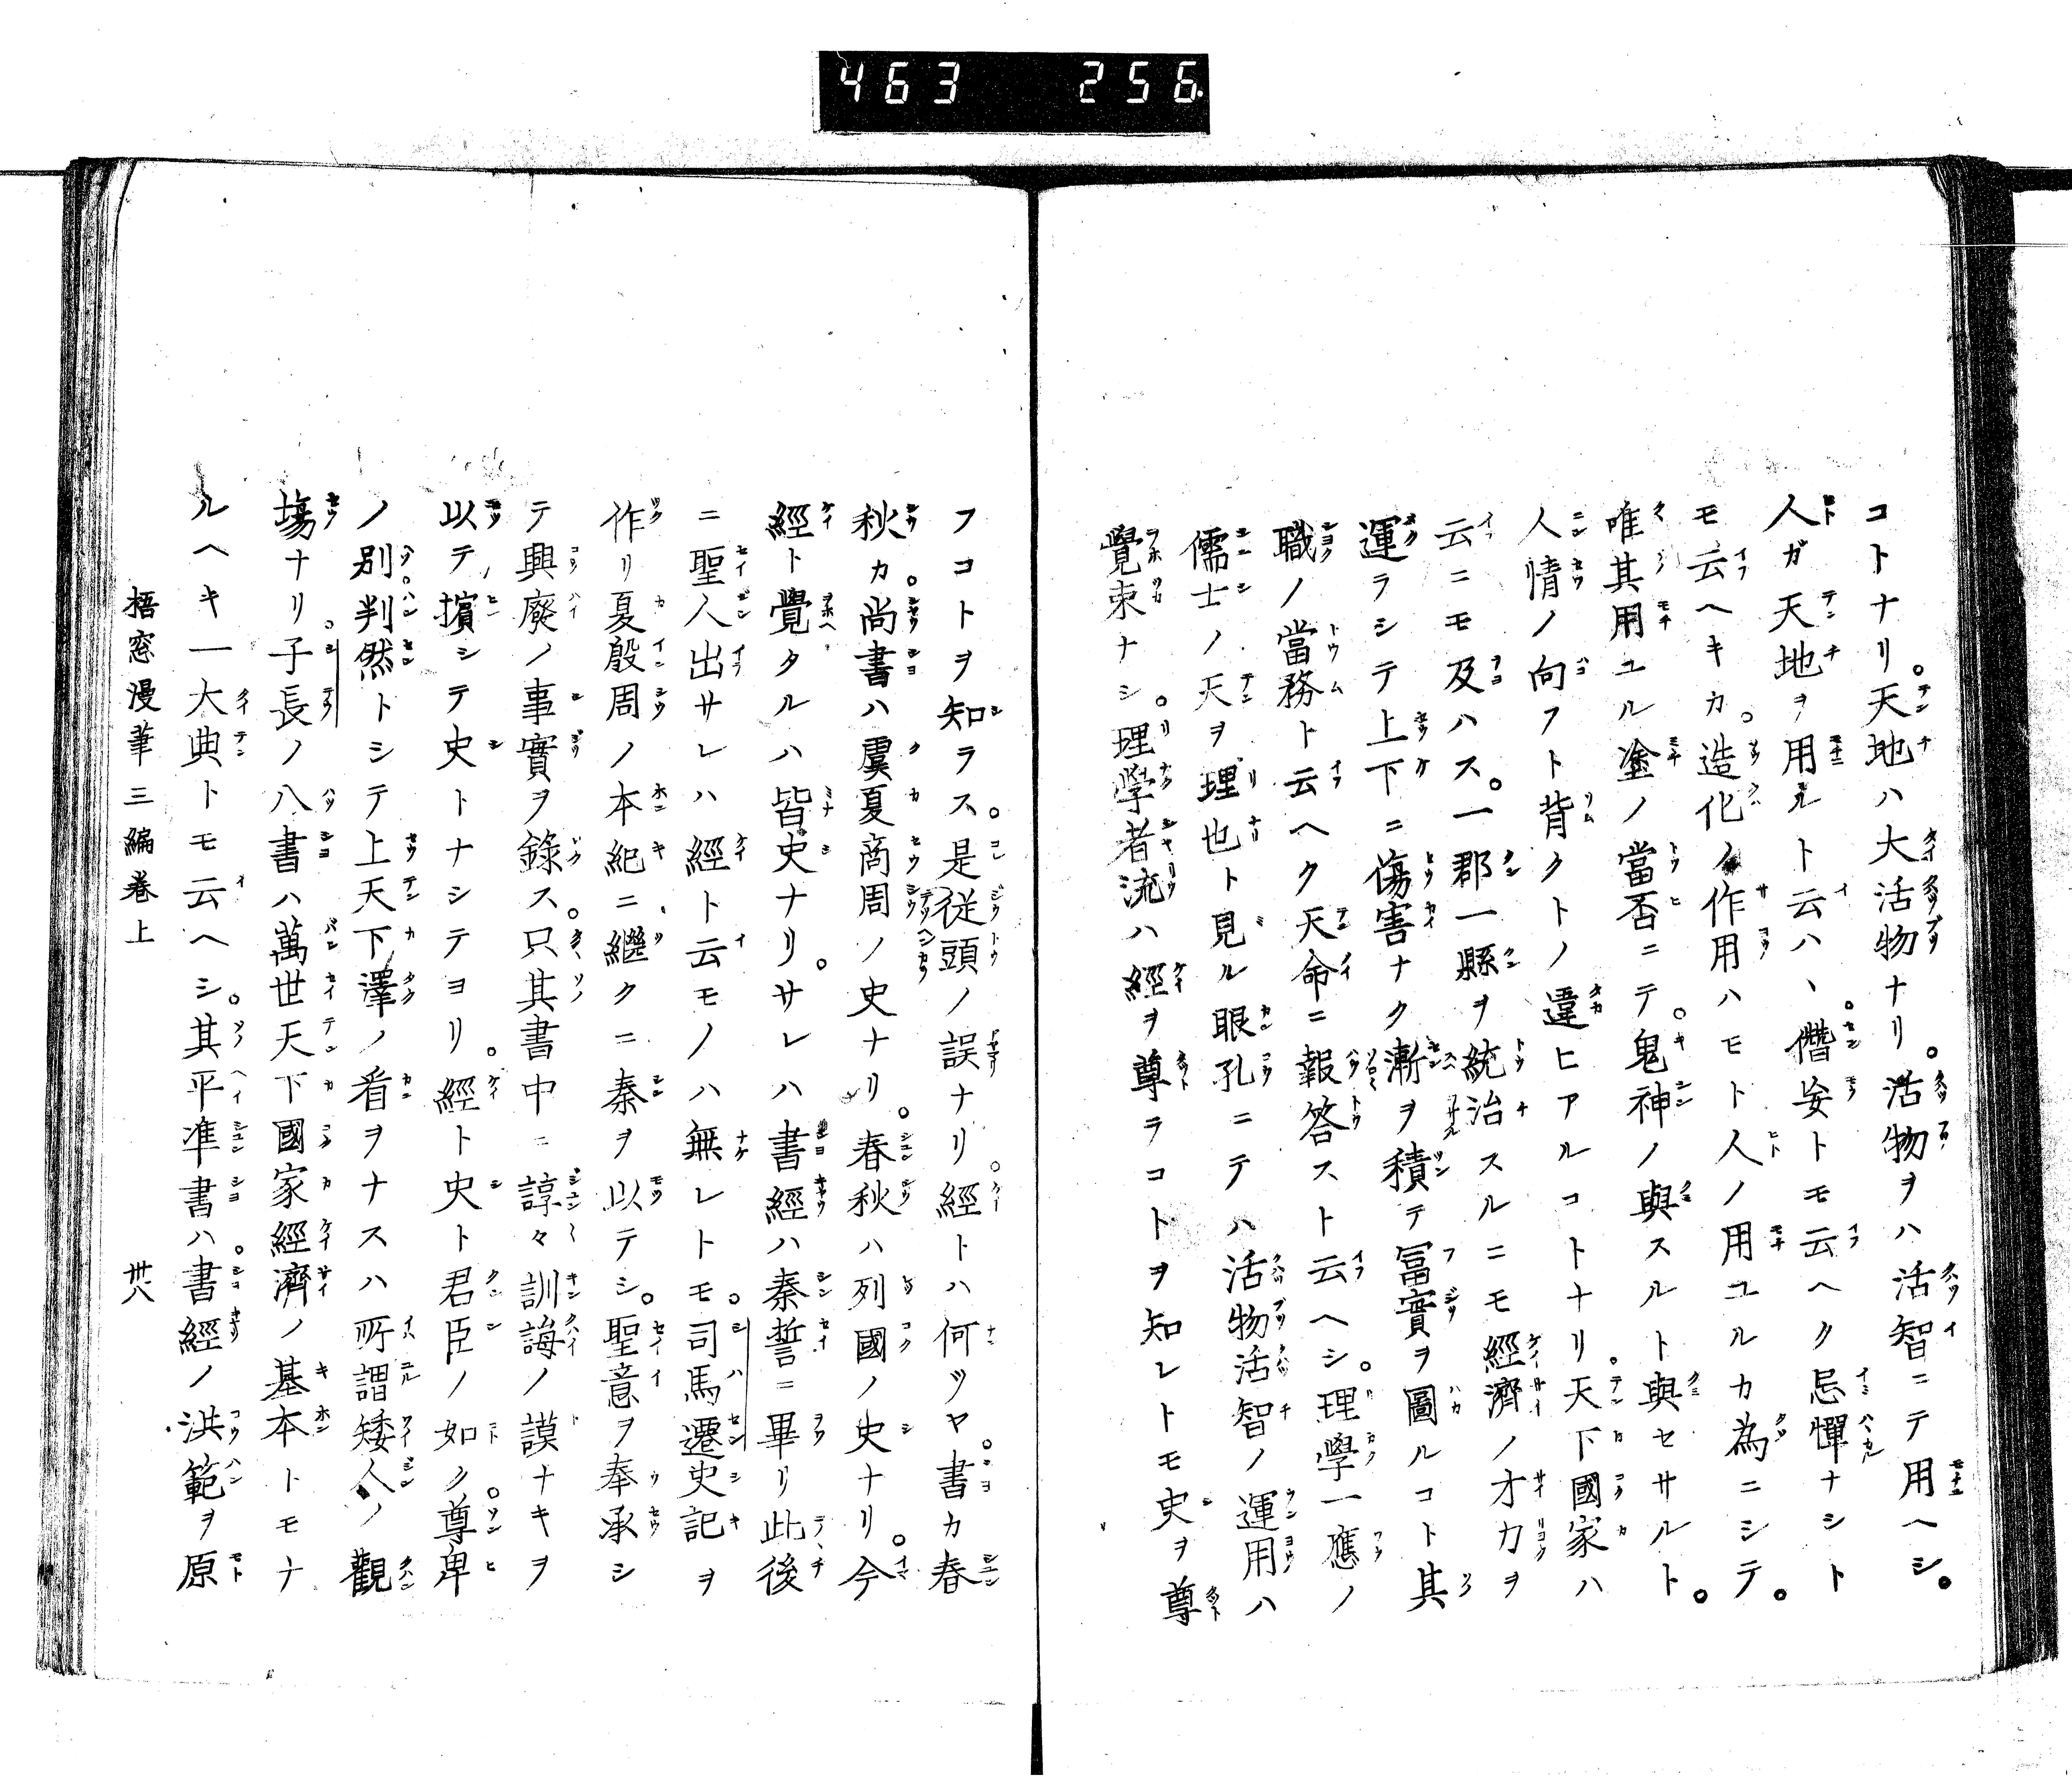 463 256
コトナリ。天地ハ大活物ナリ。活物ヲハ活智ニテ用ヘシ。
人ガ天地ヲ用ルト云ハヽ。僭妄トモ云ヘク忌憚ナシト
モ云ヘキカ。造化ノ作用ハモト人ノ用ユルカ為ニシテ。
唯其用ユル塗ノ當否ニテ。鬼神ノ與スルト與セサルト。
人情ノ向フト背クトノ違ヒアルコトナリ。天下國家ハ
云ニモ及ハス。一郡一縣ヲ統治スルニモ經濟ノ才力ヲ
運ラシテ上下ニ傷害ナク漸ヲ積テ冨實ヲ圖ルコト其
職ノ當務ト云ヘク天命ニ報答スト云ヘシ。理學一應ノ
儒士ノ天ヲ理也ト見ル眼孔ニテハ活物活智ノ運用ハ
覺束ナシ。理学者流ハ經ヲ尊ラコトヲ知レトモ史ヲ尊
フコトヲ知ラス。是従頭ノ誤ナリ。經トハ何ツヤ。書カ春
秋カ。尚書ハ虞夏商周ノ史ナリ。春秋ハ列國ノ史ナリ。今
經ト覺タルハ皆史ナリ。サレハ書經ハ秦誓ニ畢リ此後
ニ聖人出サレハ經ト云モノハ無レトモ。司馬遷史記ヲ
作リ夏殷周ノ本紀ニ繼クニ秦ヲ以テシ。聖意ヲ奉承シ
テ興廢ノ事實ヲ錄ス。只其書中ニ諄々訓誨ノ謨ナキヲ
以テ擯シテ史トナシテヨリ。經ト史ト君臣ノ如ク。尊卑
ノ別判然トシテ上天下澤ノ看ヲナスハ所謂矮人ノ觀
塲ナリ。子長ノ八書ハ萬世天下國家經濟ノ基本トモナ
ルヘキ一大典トモ云ヘシ。其平準書ハ。書經ノ洪範ヲ原
梧窓漫筆三編卷上 卅八